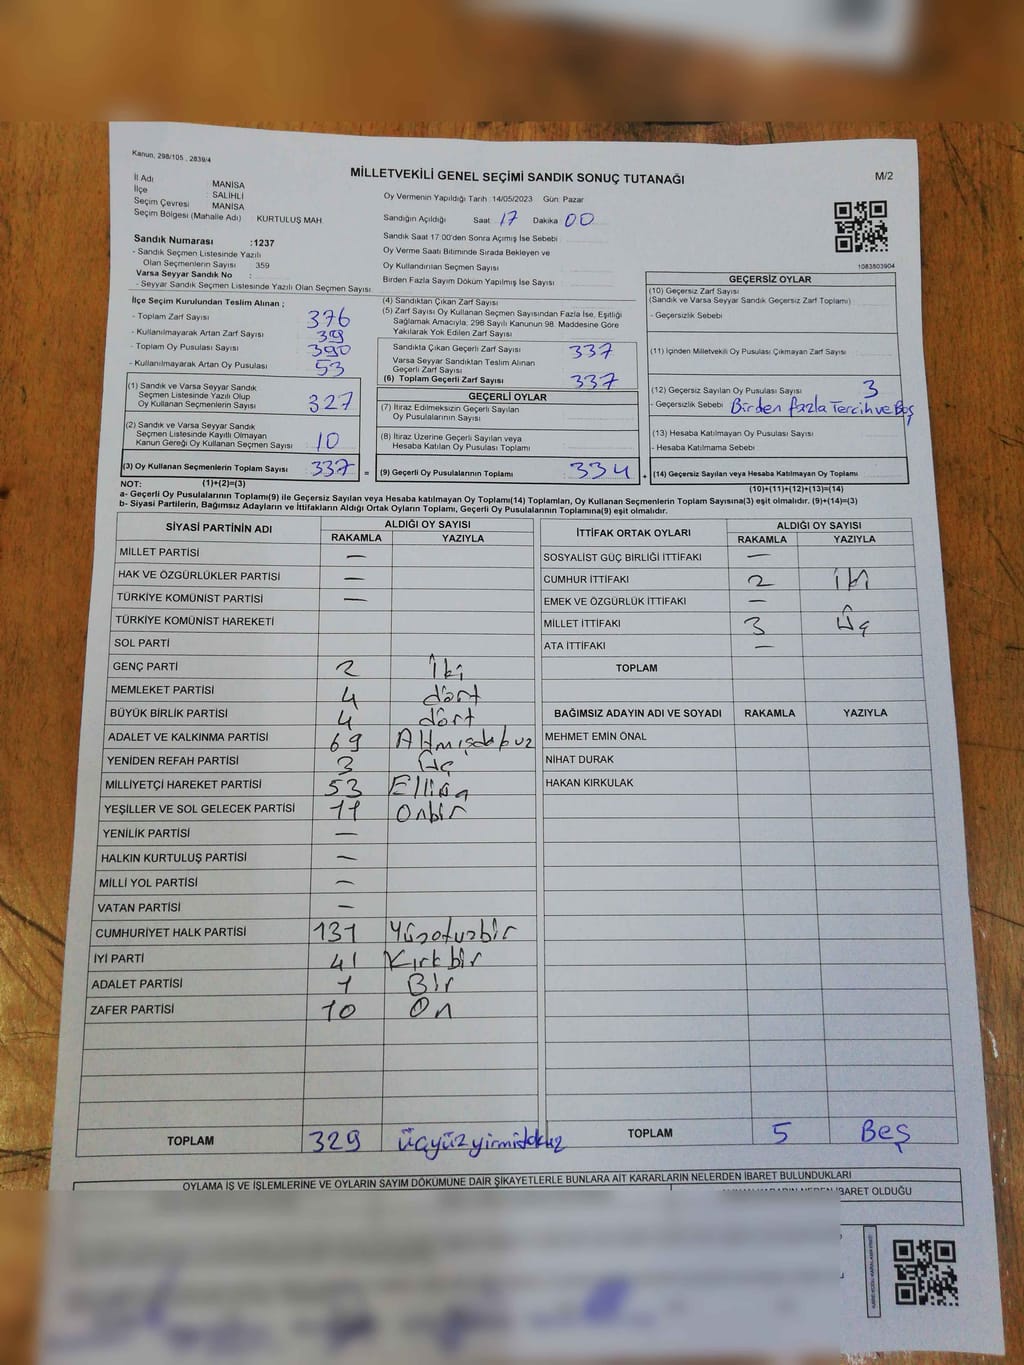 Kanun, 298/105 , 2839/4
MİLLETVEKİLİ GENEL SEÇİMİ SANDIK SONUÇ TUTANAĞI
M/2
İl Adı MANİSA
İlçe : SALİHLİ
Seçim Çevresi MANİSA
Seçim Bölgesi (Mahalle Adı) KURTULUŞ MAH.
Oy Vermenin Yapıldığı Tarih :14/05/2023 Gün: Pazar
Sandığın Açıldığı Saat 17 Dakika 00
Sandık Saat 17.00'den Sonra Açımış İse Sebebi
Oy Verme Saati Bitiminde Sırada Bekleyen ve
Oy Kullandırılan Seçmen Sayısı
Birden Fazla Sayım Döküm Yapılmış İse Sayısı
1083803904
Sandık Numarası :1237
- Sandık Seçmen Listesinde Yazılı
Olan Seçmenlerin Sayısı 359
Varsa Seyyar Sandık No :
- Seyyar Sandık Seçmen Listesinde Yazılı Olan Seçmen Sayısı:
İlçe Seçim Kurulundan Teslim Alınan ;
- Toplam Zarf Sayısı 376
- Kullanılmayarak Artan Zarf Sayısı 39
- Toplam Oy Pusulası Sayısı 390
- Kullanılmayarak Artan Oy Pusulası 53
(1) Sandık ve Varsa Seyyar Sandık
Seçmen Listesinde Yazılı Olup
Oy Kullanan Seçmenlerin Sayısı 327
(2) Sandık ve Varsa Seyyar Sandık
Seçmen Listesinde Kayıtlı Olmayan
Kanun Gereği Oy Kullanan Seçmen Sayısı 10
(3) Oy Kullanan Seçmenlerin Toplam Sayısı 337 =
(4) Sandıktan Çıkan Zarf Sayısı
(5) Zarf Sayısı Oy Kullanan Seçmen Sayısından Fazla İse, Eşitliği
Sağlamak Amacıyla; 298 Sayılı Kanunun 98. Maddesine Göre
Yakılarak Yok Edilen Zarf Sayısı
Sandıkta Çıkan Geçerli Zarf Sayısı 337
Varsa Seyyar Sandıktan Teslim Alınan
Geçerli Zarf Sayısı
(6) Toplam Geçerli Zarf Sayısı 337
GEÇERLİ OYLAR
(7) İtiraz Edilmeksizin Geçerli Sayılan
Oy Pusulalarının Sayısı
(8) İtiraz Üzerine Geçerli Sayılan veya
Hesaba Katılan Oy Pusulaları Toplamı
(9) Geçerli Oy Pusulalarının Toplamı 334 +
GEÇERSİZ OYLAR
(10) Geçersiz Zarf Sayısı
(Sandık ve Varsa Seyyar Sandık Geçersiz Zarf Toplamı)
- Geçersizlik Sebebi
(11) İçinden Milletvekili Oy Pusulası Çıkmayan Zarf Sayısı
(12) Geçersiz Sayılan Oy Pusulası Sayısı 3
- Geçersizlik Sebebi Birden fazla Tercih ve Boş
(13) Hesaba Katılmayan Oy Pusulası Sayısı
- Hesaba Katılmama Sebebi
(14) Geçersiz Sayılan veya Hesaba Katılmayan Oy Toplamı
NOT: (1)+(2)=(3) (10)+(11)+(12)+(13)=(14)
a- Geçerli Oy Pusulalarının Toplamı(9) ile Geçersiz Sayılan veya Hesaba katılmayan Oy Toplamı(14) Toplamları, Oy Kullanan Seçmenlerin Toplam Sayısına(3) eşit olmalıdır. (9)+(14)=(3)
b- Siyasi Partilerin, Bağımsız Adayların ve İttifakların Aldığı Ortak Oyların Toplamı, Geçerli Oy Pusulalarının Toplamına(9) eşit olmalıdır.
SİYASİ PARTİNİN ADI ALDIĞI OY SAYISI
RAKAMLA YAZIYLA
MİLLET PARTİSİ —
HAK VE ÖZGÜRLÜKLER PARTİSİ —
TÜRKİYE KOMÜNİST PARTİSİ —
TÜRKİYE KOMÜNİST HAREKETİ
SOL PARTİ
GENÇ PARTİ 2 İki
MEMLEKET PARTİSİ 4 dört
BÜYÜK BİRLİK PARTİSİ 4 dört
ADALET VE KALKINMA PARTİSİ 69 Altmışdokuz
YENİDEN REFAH PARTİSİ 3 Üç
MİLLİYETÇİ HAREKET PARTİSİ 53 Elliüç
YEŞİLLER VE SOL GELECEK PARTİSİ 11 Onbir
YENİLİK PARTİSİ —
HALKIN KURTULUŞ PARTİSİ —
MİLLİ YOL PARTİSİ —
VATAN PARTİSİ —
CUMHURİYET HALK PARTİSİ 131 Yüzotuzbir
İYİ PARTİ 41 Kırkbir
ADALET PARTİSİ 1 Bir
ZAFER PARTİSİ 10 On
TOPLAM 329 üçyüzyirmidokuz
İTTİFAK ORTAK OYLARI ALDIĞI OY SAYISI
RAKAMLA YAZIYLA
SOSYALİST GÜÇ BİRLİĞİ İTTİFAKI —
CUMHUR İTTİFAKI 2 İki
EMEK VE ÖZGÜRLÜK İTTİFAKI —
MİLLET İTTİFAKI 3 Üç
ATA İTTİFAKI —
TOPLAM
BAĞIMSIZ ADAYIN ADI VE SOYADI RAKAMLA YAZIYLA
MEHMET EMİN ÖNAL
NİHAT DURAK
HAKAN KIRKULAK
TOPLAM 5 Beş
OYLAMA İŞ VE İŞLEMLERİNE VE OYLARIN SAYIM DÖKÜMÜNE DAİR ŞİKAYETLERLE BUNLARA AİT KARARLARIN NELERDEN İBARET BULUNDUKLARI
İBARET OLDUĞU